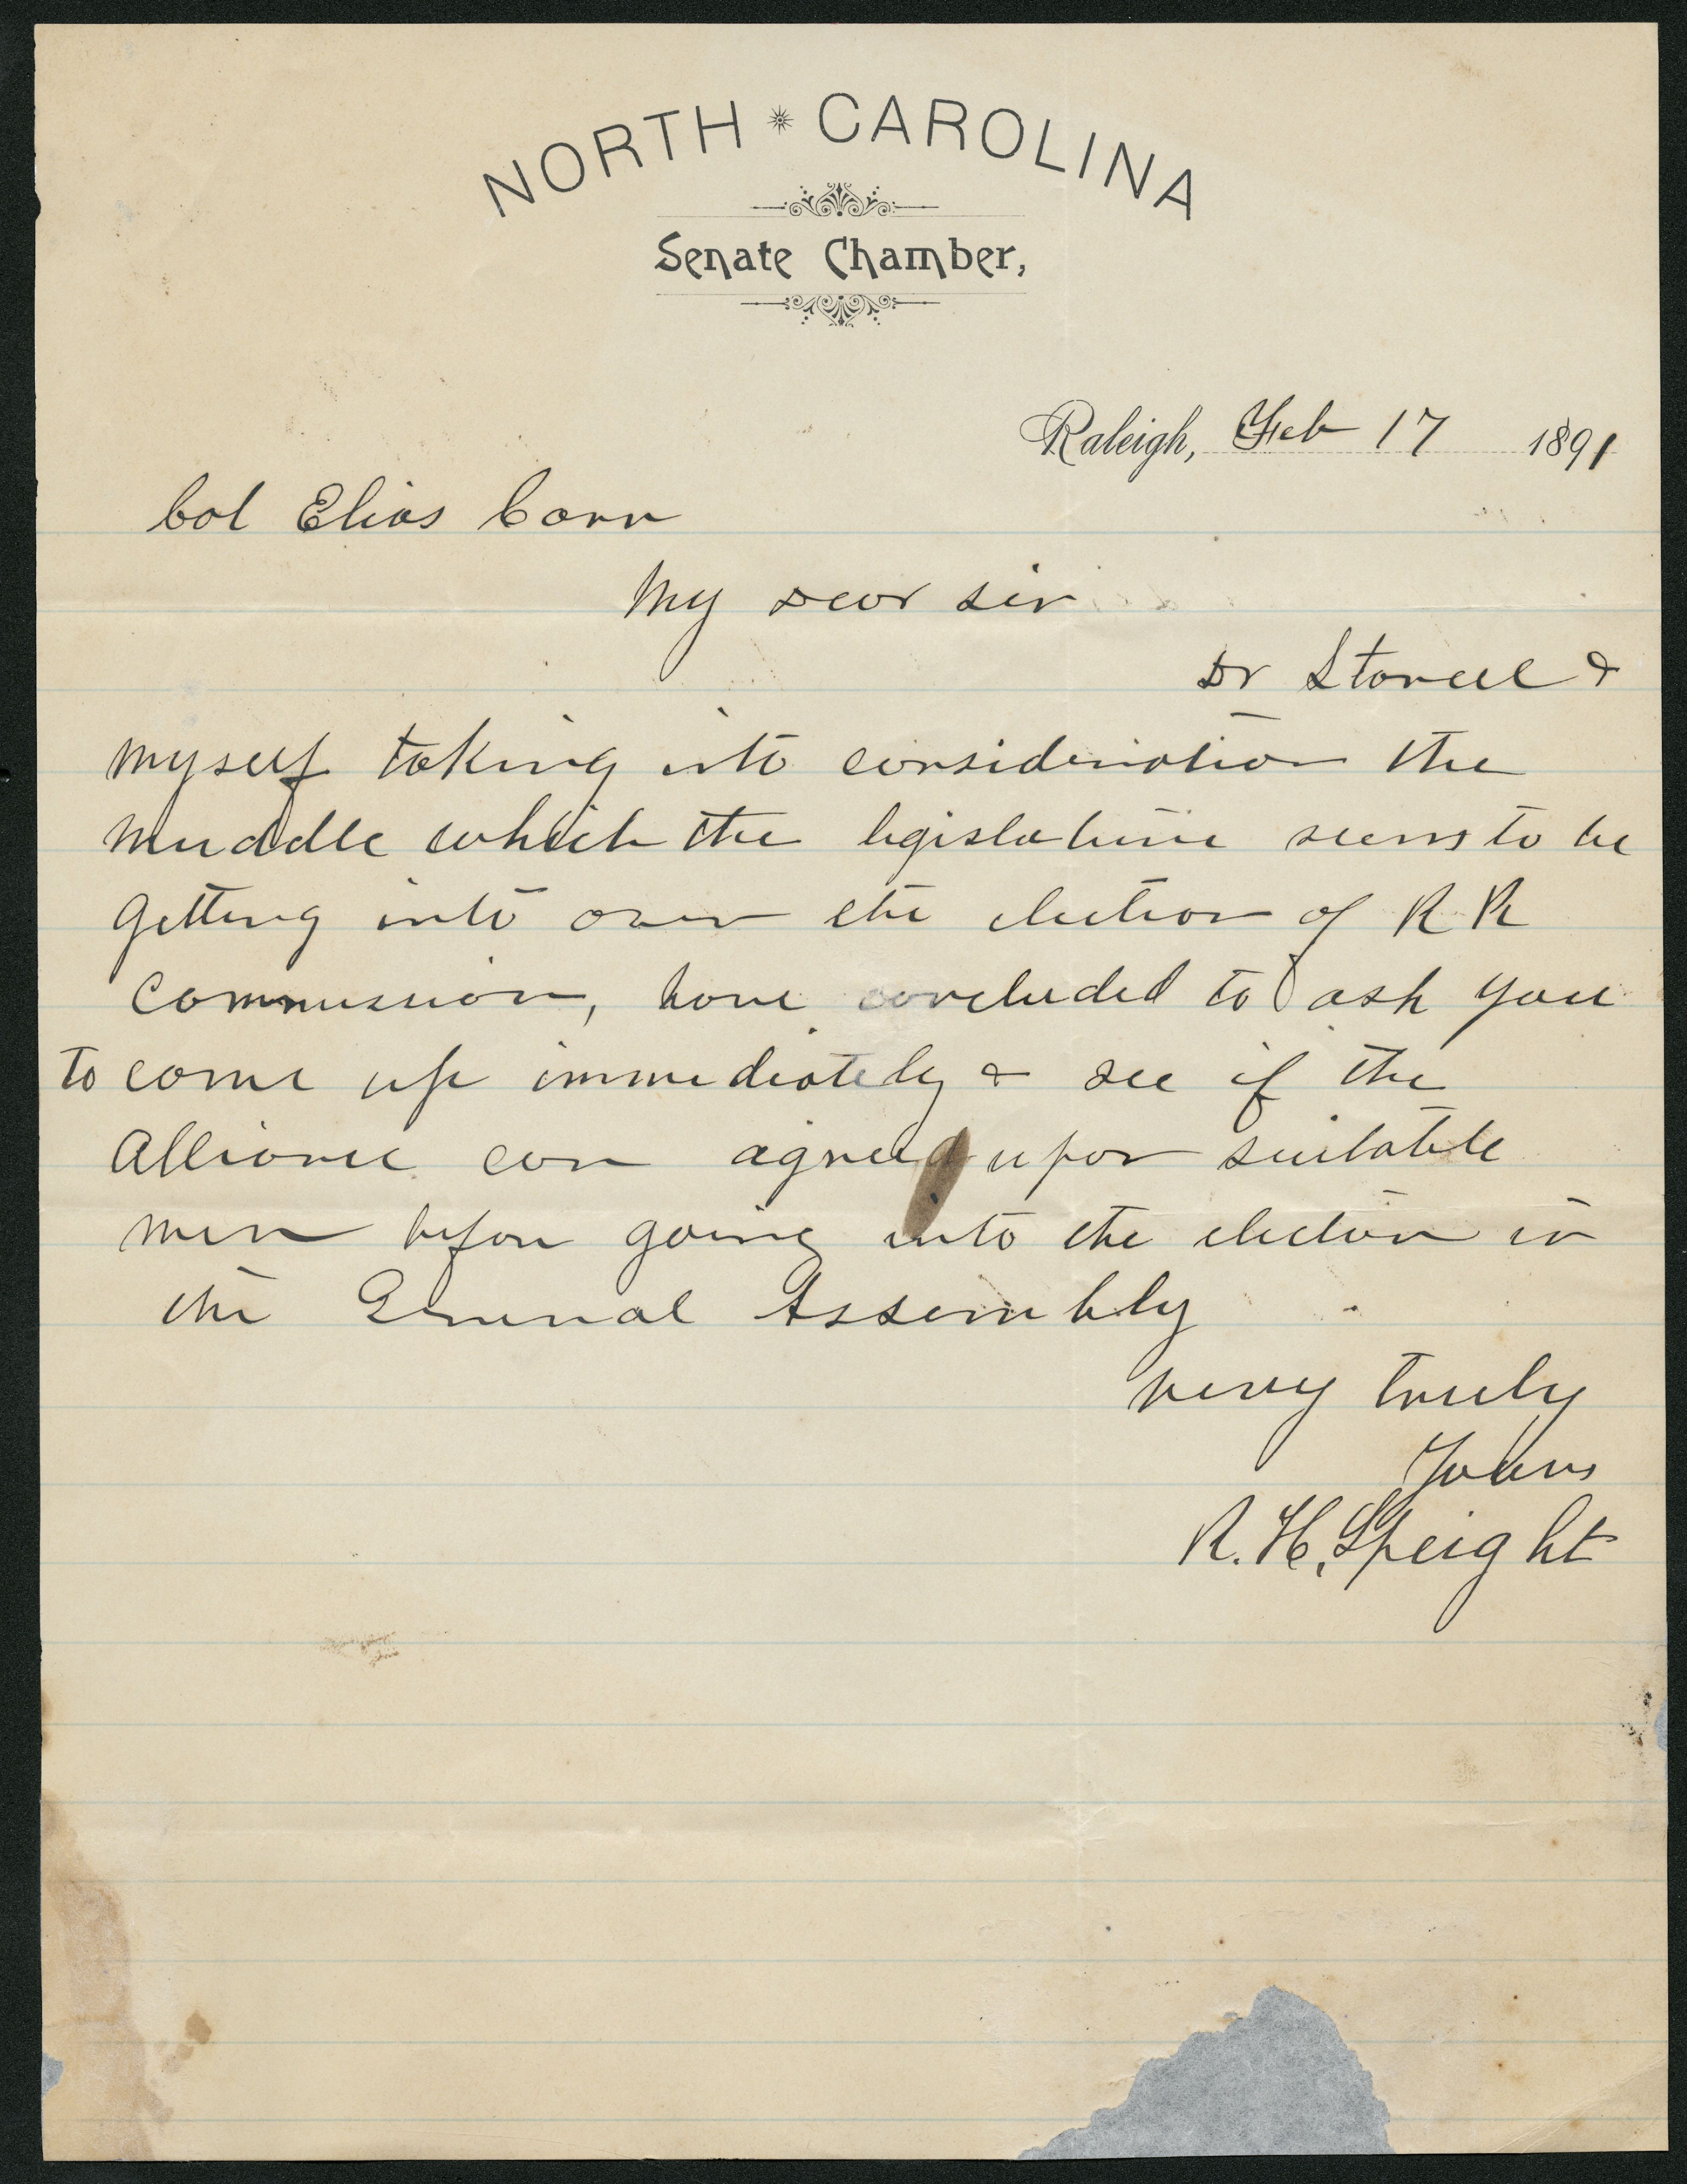 NORTH * CAROLINA
Senate Chamber,
Raleigh, Feb 17 1891
Col Elias Carr
My Dear Sir
Dr &
myself taking into consideration the
muddle which the legislature seems to be
getting into over the election of R R
Commission, have concluded to ask you
to come up immediately & see if the
Alliance can agree upon suitable
men before going into the election in
the General Assembly
very truly
Yours
R. H. Speight